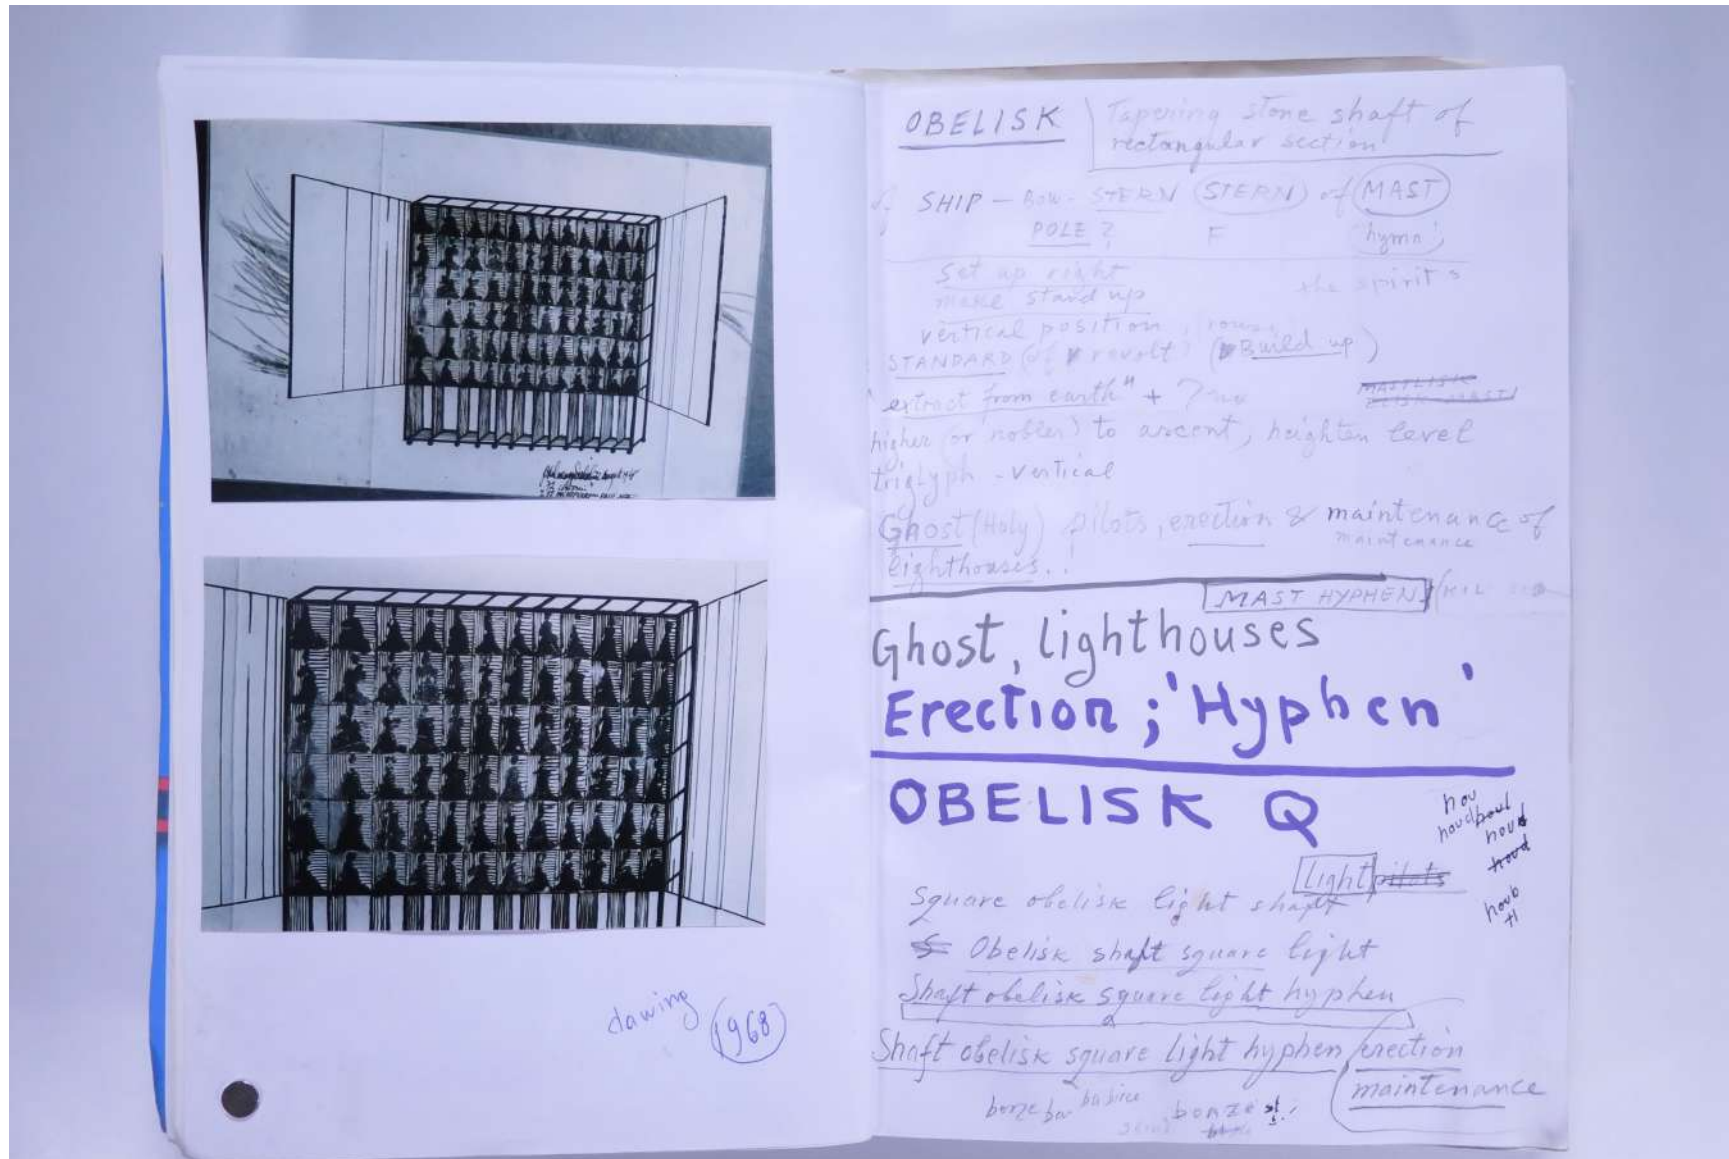 dawing
1968
OBELISK Tapering stone shaft of
rectangular section
SHIP – BOW - STERN (STERN) of MAST
POLE ? F hymn
Set up right the spirit s
make stand up
vertical position,
STANDARD (of revolt) (Build up)
extract from earth" +
higher (or nobler) to ascent, heighten level
triglyph - vertical
Ghost (Holy) pilots, erection & maintenance of
maintenance
lighthouses..!
MAST HYPHEN
Ghost, lighthouses
Erection; 'Hyphen'
OBELISK Q
hou
light pilots
Square obelisk light shaft
Obelisk shaft square light
Shaft obelisk square light hyphen
Shaft obelisk square light hyphen erection
maintenance
bonze